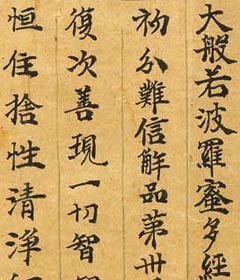 大般若波羅蜜多經
初分難信解品苐卅
復次善現一切智智
恒住捨性清淨